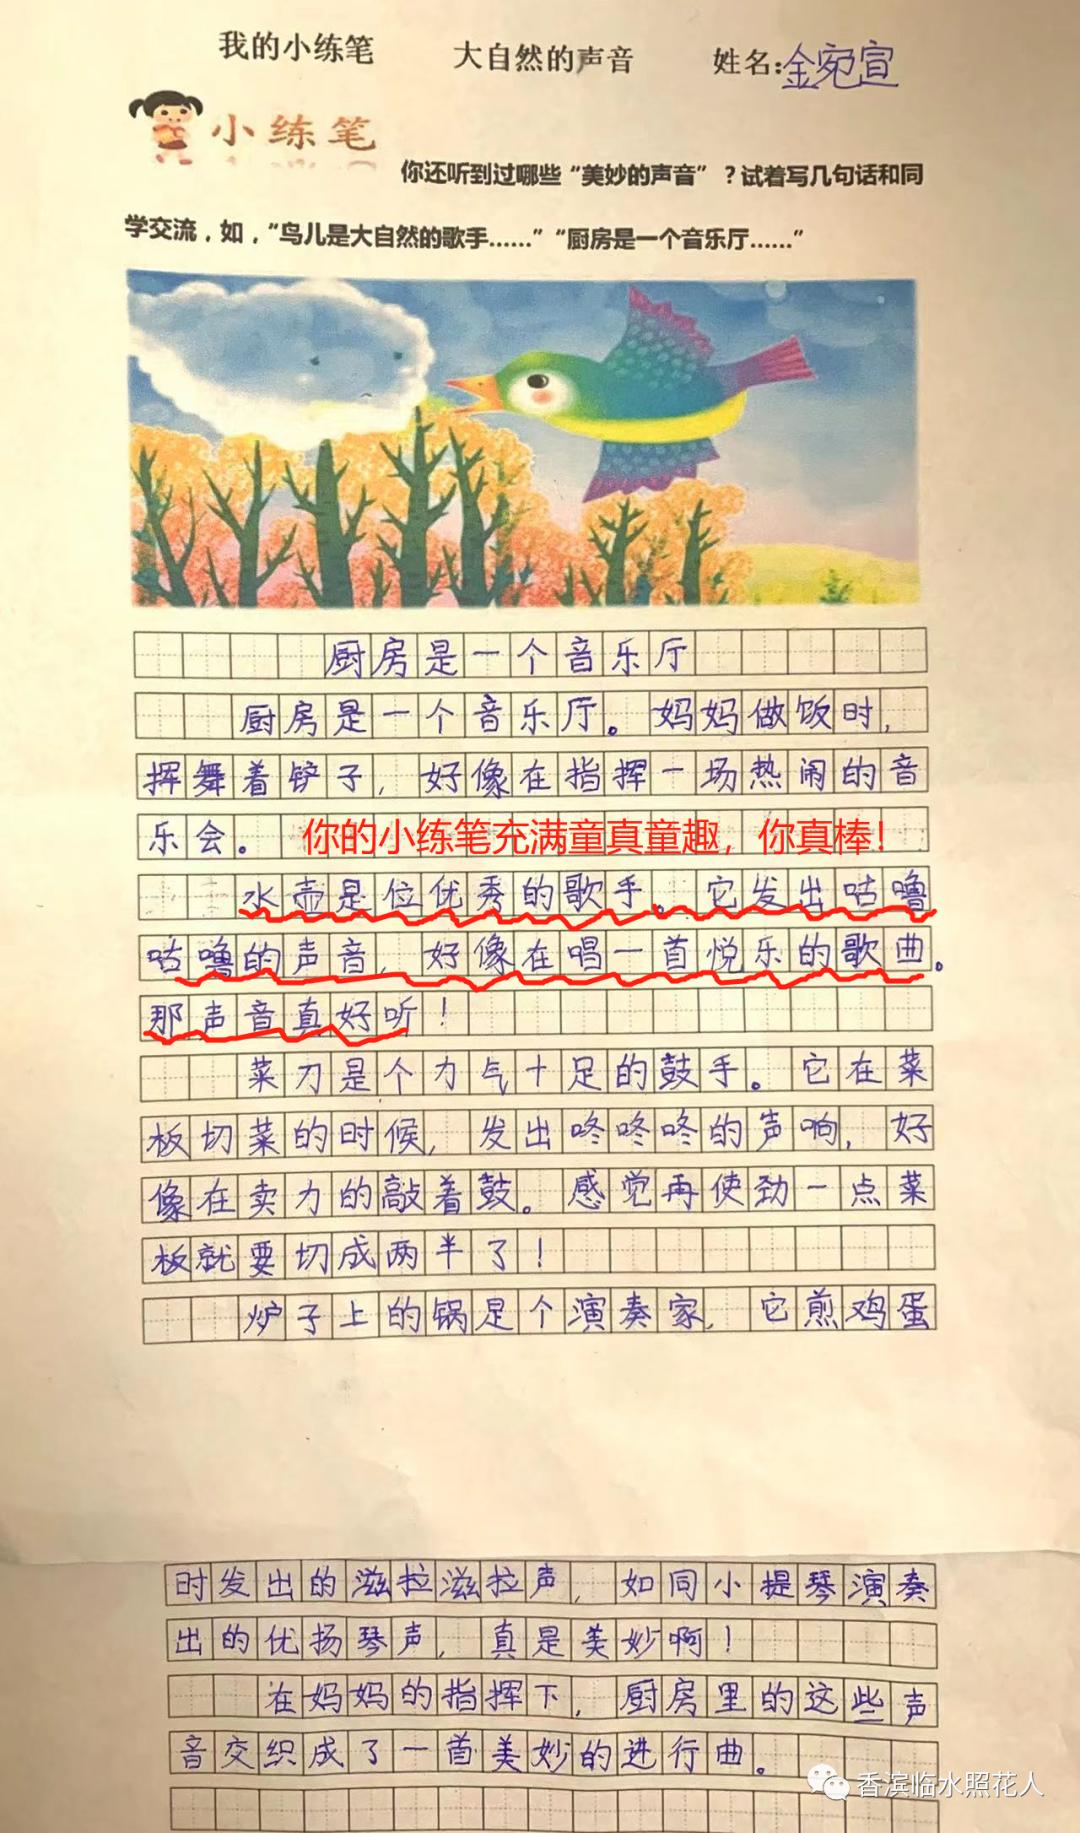 我的小练笔 大自然的声音 姓名:金宛宣
小练笔
你还听到过哪些“美妙的声音”？试着写几句话和同
学交流，如，“鸟儿是大自然的歌手……”“厨房是一个音乐厅……”
厨房是一个音乐厅
厨房是一个音乐厅。妈妈做饭时，
挥舞着铲子，好像在指挥一场热闹的音
乐会。
你的小练笔充满童真童趣，你真棒！
水壶是位优秀的歌手。它发出咕噜
咕噜的声音，好像在唱一首悦乐的歌曲。
那声音真好听！
菜刀是个力气十足的鼓手。它在菜
板切菜的时候，发出咚咚咚的声响，好
像在卖力的敲着鼓。感觉再使劲一点菜
板就要切成两半了！
炉子上的锅是个演奏家，它煎鸡蛋
时发出的滋拉滋拉声，如同小提琴演奏
出的优扬琴声，真是美妙啊！
在妈妈的指挥下，厨房里的这些声
音交织成了一首美妙的进行曲。
香滨临水照花人